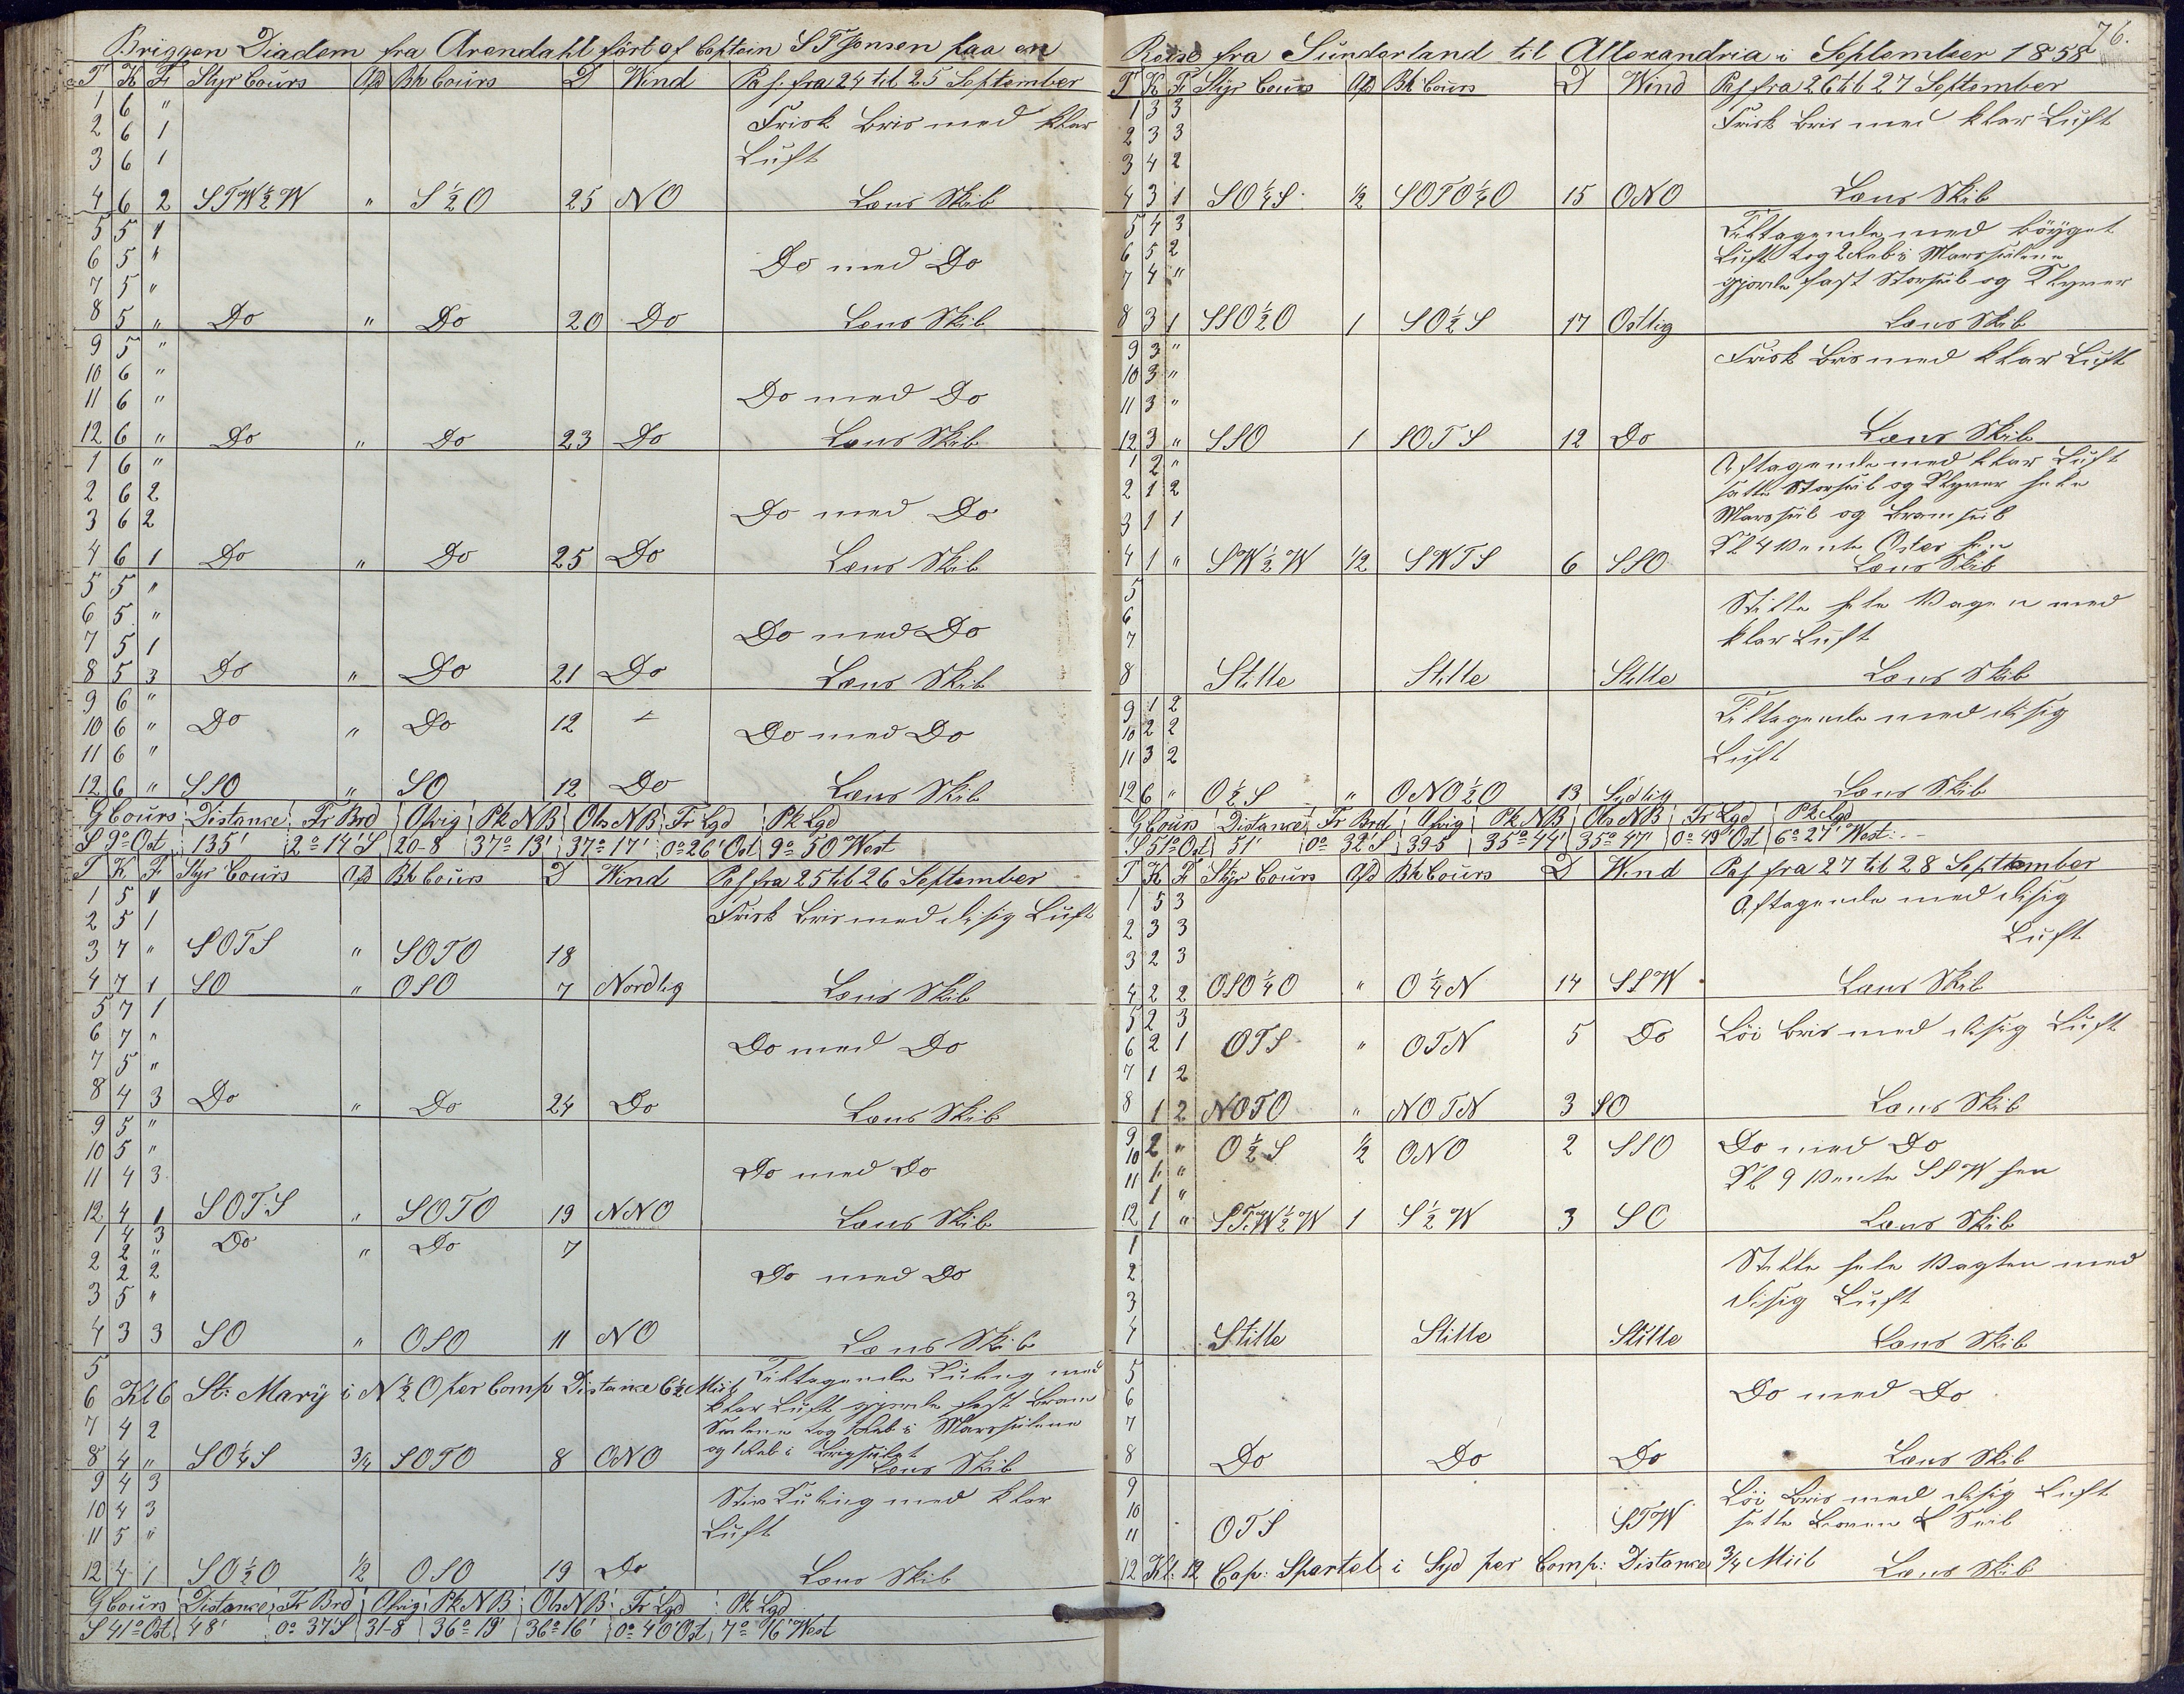 Briggen Diadem fra Arendahl fört af Captein S T Jensen paa en
T K F Styr Cours Afd Bh Cours D Wind Pas. fra 24 til 25 September
1 6 "
2 6 1 Frisk Bris med klar
3 6 1 Luft
4 6 2 STW½W " S½O 25 NO Læns Skib
5 5 1
6 5 " Do med Do
7 5 "
8 5 " Do " Do 20 Do Læns Skib
9 5 "
10 6 "
11 6 " Do med Do
12 6 " Do " Do 23 Do Læns Skib
1 6 "
2 6 2
3 6 2 Do med Do
4 6 1 Do " Do 25 Do Læns Skib
5 5 "
6 5 "
7 5 1 Do med Do
8 5 3 Do " Do 21 Do Læns Skib
9 6 "
10 6 " Do " Do 12 Do med Do
11 6 "
12 6 " SSO " SO 12 Do Læns Skib
G Cours Distance Fr Brd Afvig Pk NB Obs NB Fr Lgd Pk Lgd
S 9° Ost 135' 2° 14' S 20-8 37° 13' 37° 17' 0° 26' Ost 9° 50' West
T K F Styr Cours Afd Bh Cours D Wind Pas fra 25 til 26 September
1 5 1 Frisk Bris med disig Luft
2 5 1
3 7 " SOTS " SOTO 18
4 7 1 SO " OSO 7 Nordlig Læns Skib
5 7 1
6 7 " Do med Do
7 5 "
8 4 3 Do " Do 24 Do Læns Skib
9 5 "
10 5 "
11 4 3 Do med Do
12 4 1 SOTS " SOTO 19 NNO Læns Skib
1 4 3 Do " Do 7
2 2 "
2 2 Do med Do
3 5 "
4 3 3 SO " OSO 11 NO Læns Skib
5 Tiltagende Kuling med
6 Kl 6 St: Mary i N½O per Comp Distance 6½ Miil
klar Luft gjorde fast Bram
7 4 2 Seilene tog 1 Reb i Mersseilene
8 4 " SO¼S ¾ SOTO 8 ONO og 1 Reb i Brigseilet
Læns Skib
9 4 3 Stiv Kuling med klar
10 4 3
11 5 " Luft
12 4 1 SO½O ½ OSO 19 Do Læns Skib
G Cours Distance Fr Brd Afvig Pk NB Obs NB Fr Lgd Pk Lgd
S 41° Ost 48' 0° 37' S 31-8 36° 19' 36° 16' 0° 40' Ost 7° 16' West
76.
Reise fra Sunderland til Allexandria i September 1858
T K F Styr Cours Afd Bh Cours D Wind Pas fra 26 til 27 September
1 3 3 Frisk Bris med klar Luft
2 3 3
3 4 2
4 3 1 SO¼S ½ SOTO¼O 15 ONO Læns Skib
5 4 3 Tiltagende med böyget
6 5 2 Luft tog 2 Reb i Mersseilene
7 4 " gjorde fast Storseil og Klyver
8 3 1 SSO½O 1 SO½S 17 Ostlig Læns Skib
9 3 " Frisk Bris med klar Luft
10 3 "
11 3 "
12 3 " SSO 1 SOTS 12 Do Læns Skib
1 2 " Aftagende med klar Luft
2 1 2 satte Storseil og Klyver hele
3 1 1 Mersseil og Bramseil
Kl 4 vente Oster hen
4 1 " SW½W ½ SWTS 6 SSO Læns Skib
5 Stille hele Vagen med
6
7 klar Luft
8 Stille Stille Stille Læns Skib
9 1 2 Tiltagende med disig
10 2 2
11 3 2 Luft
12 6 " O½S " ONO½O 13 Sydlig Læns Skib
G Cours Distance Fr Brd Afvig Pk NB Obs NB Fr Lgd Pk Lgd
S 51° Ost 51' 0° 32' S 39-5 35° 44' 35° 47' 0° 49' Ost 6° 27' West
T K F Styr Cours Afd Bh Cours D Wind Pas fra 27 til 28 Septtember
1 5 3 Aftagende med disig
2 3 3 Luft
3 2 3
4 2 2 OSO¼O " O¼N 14 SSW Læns Skib
5 2 3
6 2 1 OTS " OTN 5 Do Löi Bris med disig Luft
7 1 2
8 1 2 NOTO " NOTN 3 SO Læns Skib
9 2 " O½S ½ ONO 2 SSO Do med Do
10 1 " Kl 9 vente SSW hen
11 1 "
12 1 " STW½W 1 S½W 3 SO Læns Skib
1 Stille hele Vagten med
2
3 disig Luft
4 Stille Stille Stille Læns Skib
5
6 Do med Do
7
8 Do Do Do Læns Skib
9 Löi Bris med disig Luft
10 STW satte
11 OTS
12 Kl: 12 Cap: Spartel i Syd per Comp: Distance ¾ Miil Læns Skib